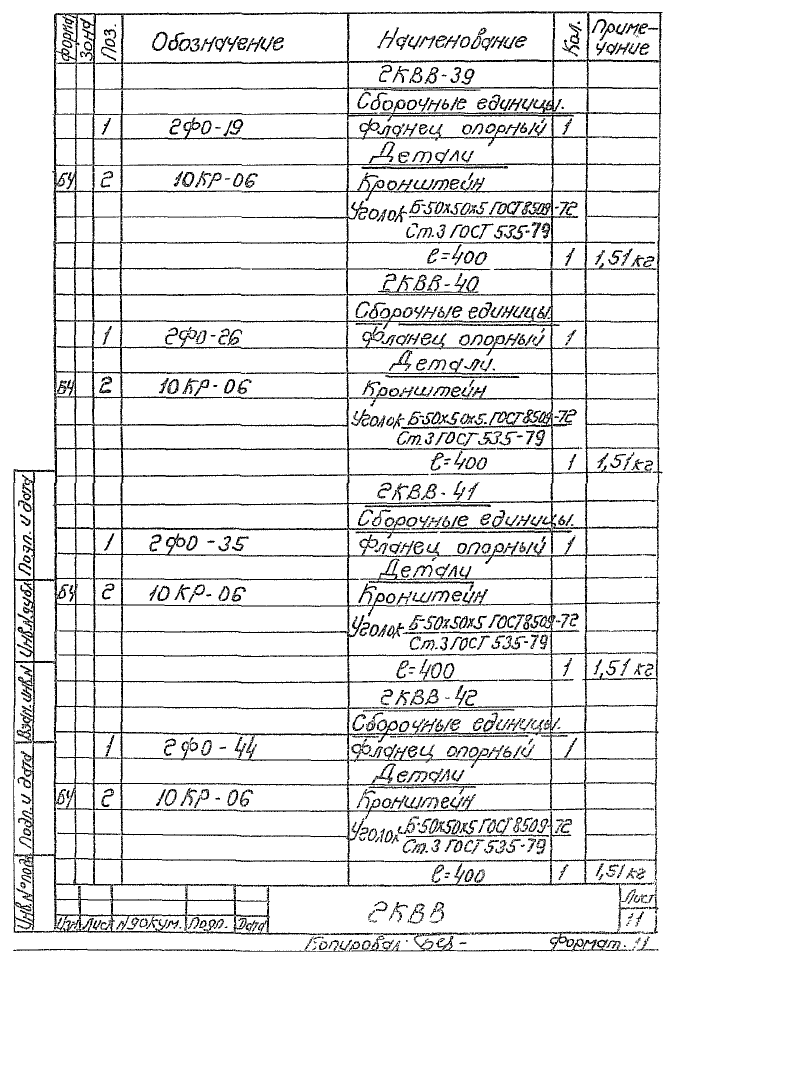 Форма Зона Поз. Обозначение Наименование Кол. Приме-
чание
2КВВ-39
Сборочные единицы.
1 2ФО-19 Фланец опорный 1
Детали
БЧ 2 10КР-06 Кронштейн
Уголок Б-50х50х5 ГОСТ 8509-72
Ст.3 ГОСТ 535-79
ℓ=400 1 1,51 кг
2КВВ-40
Сборочные единицы.
1 2ФО-26 Фланец опорный 1
Детали.
БЧ 2 10КР-06 Кронштейн
Уголок Б-50х50х5. ГОСТ 8509-72
Ст.3 ГОСТ 535-79
ℓ=400 1 1,51 кг
2КВВ-41
Сборочные единицы.
1 2ФО-35 Фланец опорный 1
Детали
БЧ 2 10КР-06 Кронштейн
Уголок Б-50х50х5 ГОСТ 8509-72
Ст.3 ГОСТ 535-79
ℓ=400 1 1,51 кг
2КВВ-42
Сборочные единицы.
1 2ФО-44 Фланец опорный 1
Детали
БЧ 2 10КР-06 Кронштейн
Уголок Б-50х50х5 ГОСТ 8509-72
Ст.3 ГОСТ 535-79
ℓ=400 1 1,51 кг
Подп. и дата
Инв.N дубл.
Взам.инв.N
Подп. и дата
Инв.N°подл.
Изм Лист N докум. Подп. Дата
2КВВ
Лист
11
Копировал: Формат. 11